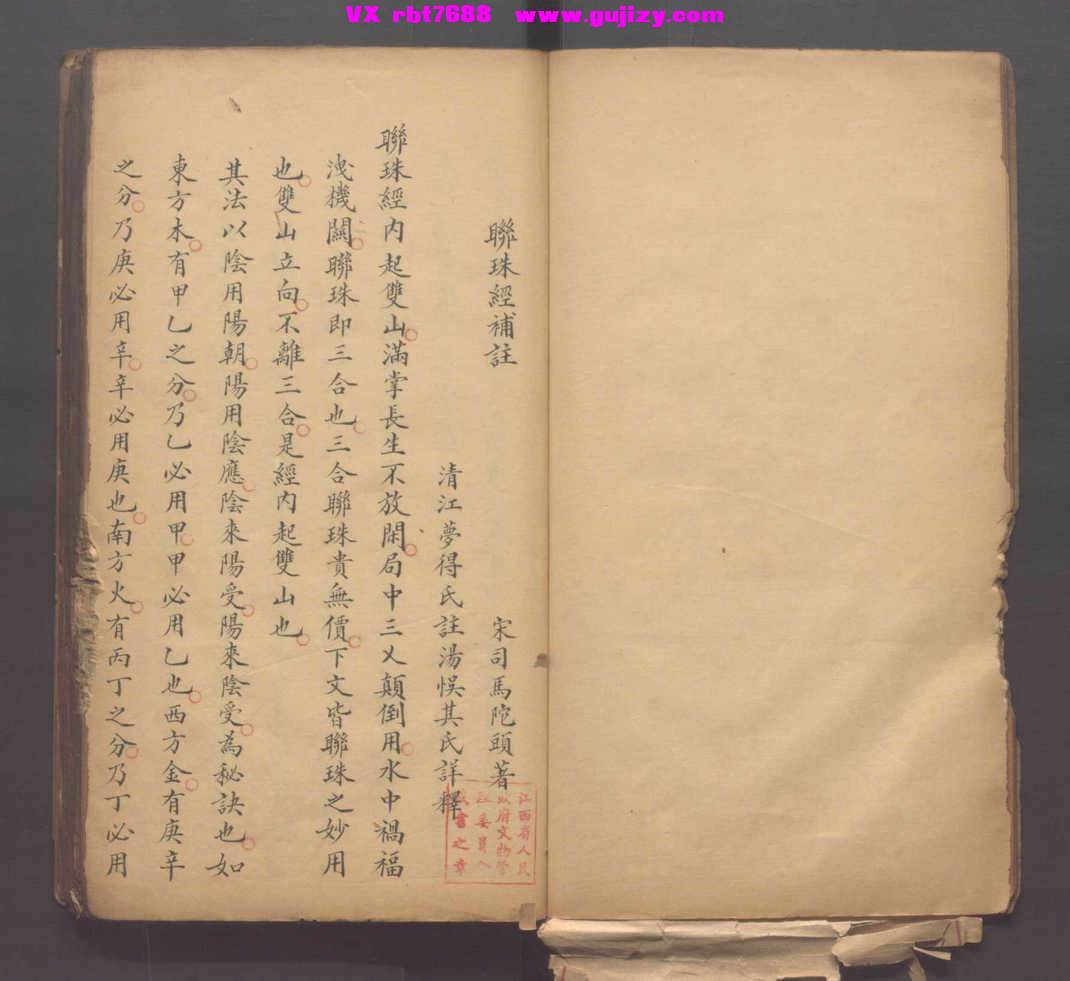 VX rbt7688 www.gujizy.com
聯珠經補註
宋司馬陀頭著
清江夢得氏註湯悞其氏詳釋
聯珠經内起雙山滿掌長生不放閑局中三乂顛倒用水中禍福
洩機關聯珠即三合也三合聯珠貴無價下文皆聯珠之妙用
也雙山立向不離三合是經内起雙山也
其法以陰用陽朝陽用陰應陰來陽受陽來陰受為秘訣也如
東方木有甲乙之分乃乙必用甲甲必用乙也西方金有庚辛
之分乃庚必用辛辛必用庚也南方火有丙丁之分乃丁必用
江西省人民
政府文物管
理委員會
藏書之章